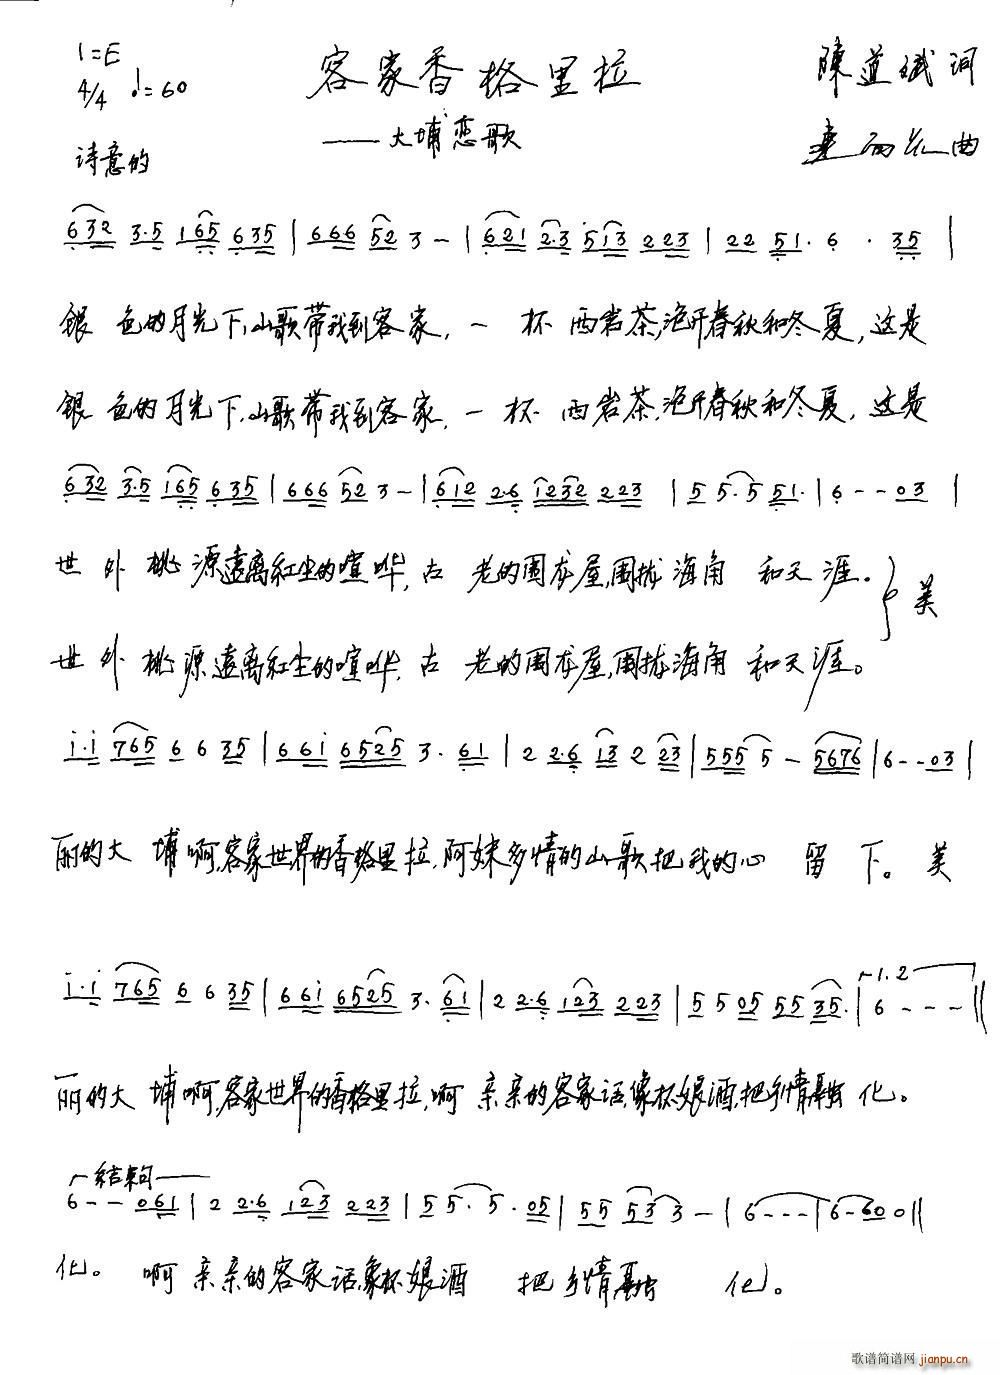 1=E 客家香格里拉 陳道斌 词
4/4 ♩=60 ——大埔恋歌 曲
诗意的
6 3 2 3·5 1 6 5 6 3 5 | 6 6 6 5 2 3 – | 6 2 1 2·3 5 1 3 2 2 3 | 2 2 5 1· 6 · 3 5 |
銀 色的月光下,山歌带我到客家, 一 杯 西岩茶,泡开春秋和冬夏, 这是
銀 色的月光下,山歌带我到客家, 一 杯 西岩茶,泡开春秋和冬夏, 这是
6 3 2 3·5 1 6 5 6 3 5 | 6 6 6 5 2 3 – | 6 1 2 2·6 1 2 3 2 2 2 3 | 5 5·5 5 1· | 6 - - 0 3 |
世 外 桃 源遠离紅尘的喧哗, 古 老的围龙屋,围拢海角 和天涯. } 美
世 外 桃 源遠离紅尘的喧哗, 古 老的围龙屋,围拢海角 和天涯。
i·i 7 6 5 6 6 3 5 | 6 6 i 6 5 2 5 3· 6 1 | 2 2·6 1 3 2 2 3 | 5 5 5 5 – 5 6 7 6 | 6 - - 0 3 |
丽的大 埔啊,客家世界的香格里拉,阿妹多情的山歌把我的心 留 下。 美
i·i 7 6 5 6 6 3 5 | 6 6 i 6 5 2 5 3· 6 1 | 2 2·6 1 2 3 2 2 3 | 5 5 0 5 5 5 3 5· | 1.2 6 - - - ‖
丽的大 埔啊,客家世界的香格里拉,啊 亲亲的客家话,像杯娘酒,把乡情融 化。
结束句
6 - - 0 6 1 | 2 2·6 1 2 3 2 2 3 | 5 5· 5· 0 5 | 5 5 5 3 3 – | 6 - - - | 6 - 6 0 0 ‖
化。 啊 亲亲的客家话,像杯娘酒 把乡情融 化。
歌谱简谱网
jianpu.cn